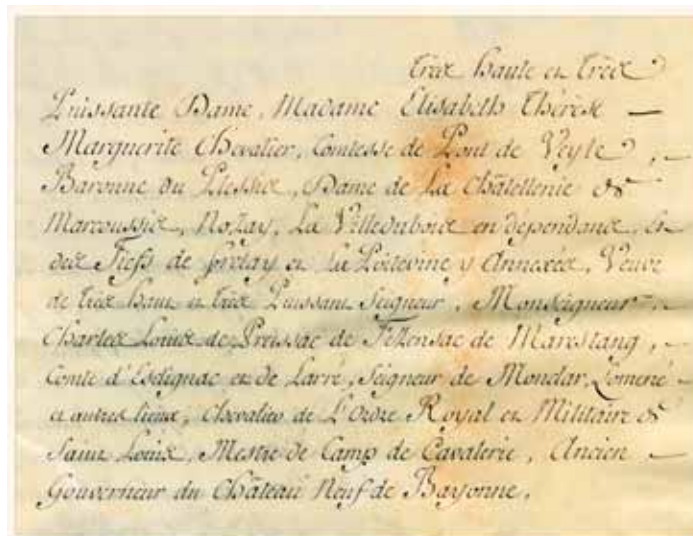 Très haute et très
Puissante Dame, Madame Elisabeth Thérèse —
Marguerite Chevalier, Comtesse de Pont de Veyle, —
Baronne du Plessis, Dame de La Châtellenie de
Marcoussis, Nozay, La Villedubois en dépendance, et
des Fiefs de frolay et la Poitevine y Annexés, Veuve
de très haut et très Puissant Seigneur, Monseigneur —
Charles Louis de Preissac de Fezensac de Marestang, —
Comte d'Esclignac et de Larré, Seigneur de Mondar, Lomené
et autres lieux, Chevalier de L'Ordre Royal et Militaire de
Saint Louis, Mestre de Camp de Cavalerie, Ancien —
Gouverneur du Château Neuf de Bayonne.